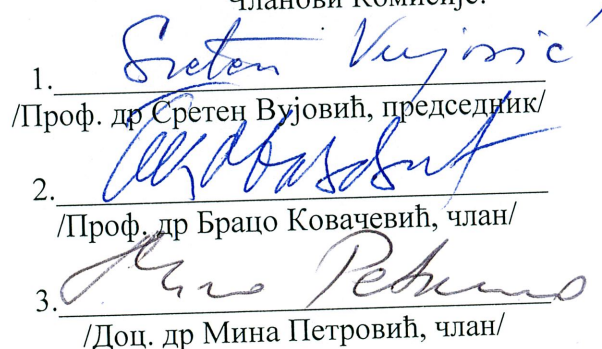 Чланови Комисије:
1. Sreten Vujović
/Проф. др Сретен Вујовић, председник/
2.
/Проф. др Брацо Ковачевић, члан/
3.
/Доц. др Мина Петровић, члан/